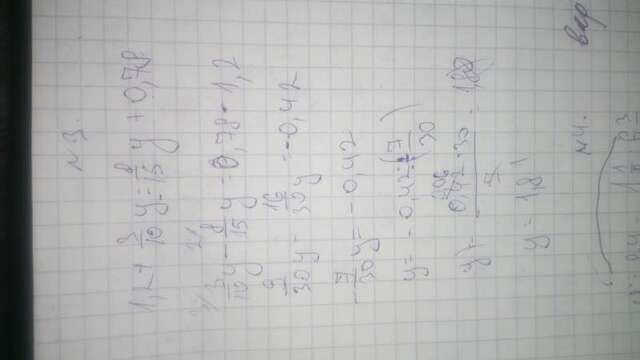 №3.
1,2 + 3/10 y = 8/15 y + 0,78
3/10 y - 8/15 y = 0,78 - 1,2
9/30 y - 16/30 y = -0,42
-7/30 y = -0,42
y = -0,42 : (-7/30)
y = 0,42 · 30 / 7 = 1,8
y = 1,8
№4.